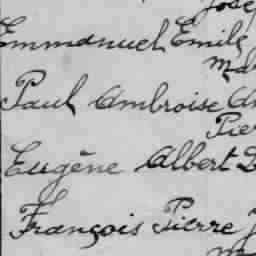 Emmanuel Emile
Paul Ambroise
Eugène Albert
François Pierre